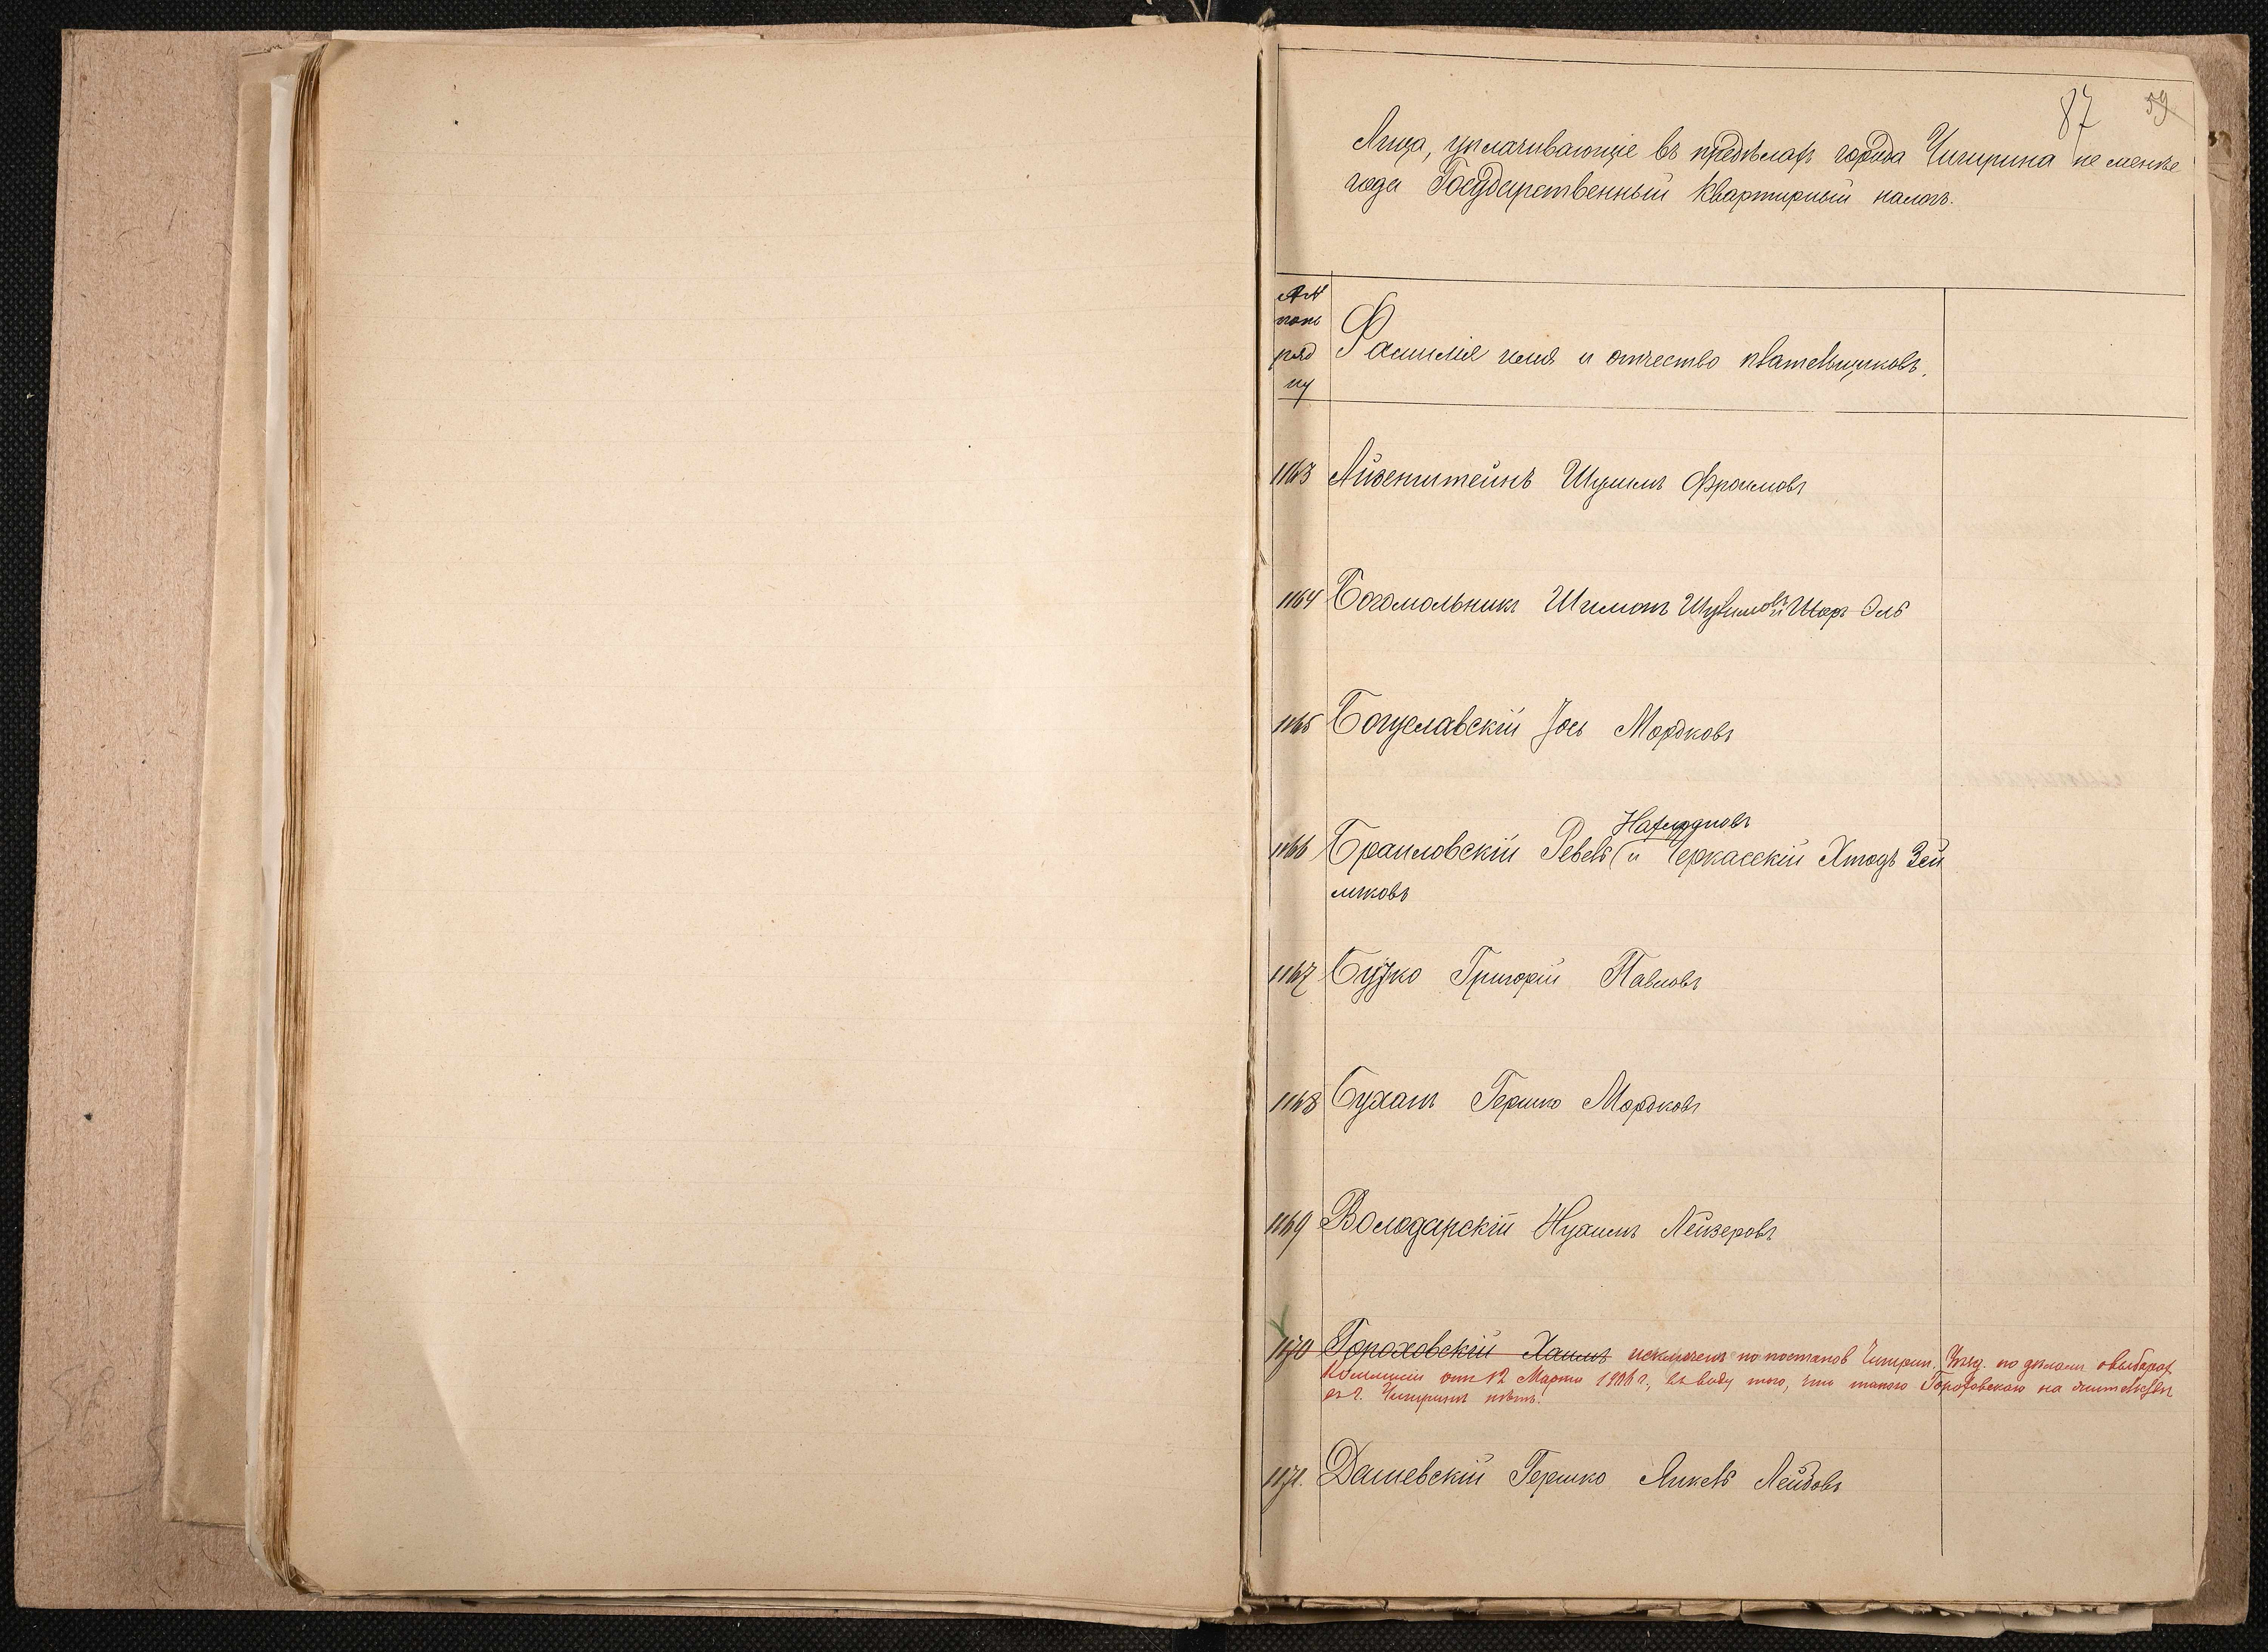 87 59
Лица, уплачивающіе въ предѣлахъ города Чигирина не менѣе
года Государственный квартирный налогъ.
№№
попо
ряд
ку
Фамилія имя и отчество плательщиковъ.
1163 Айзенштейнъ Шулимъ Фроимовъ
1164 Богомольникъ Шимонъ и Шоръ Эль
1165 Богуславскій Іось Мордковъ
Нахмановъ
1166 Браиловскій Ревель (и Черкасскій Зей
ликовъ
1167 Бузко Григорій Павловъ
1168 Бухаш Гершко Мордковъ
1169 Володарскій Нухимъ Лейзеровъ
1170 Гороховскій Хаимъ исключенъ по постанов Чигирин. Уѣзд. по дѣламъ о выборах
Коммисіи отъ 12 Марта 1906 г., въ виду того, что такого Гороховскаго на жительствѣ
въ г. Чигиринѣ нѣтъ.
1171. Дашевскій Гершко Янкель Лейбовъ